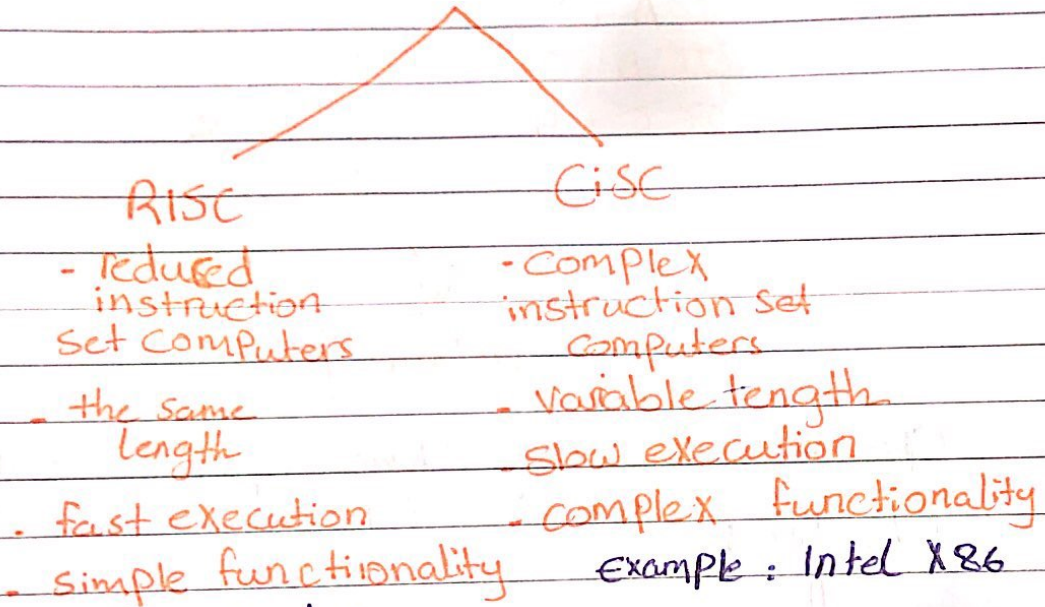 RISC
- reduced
instruction
set computers
- the same
length
- fast execution
- simple functiionality
CiSC
- complex
instruction set
computers
- variable tength
- slow execution
- complex functionality
Example : Intel X86